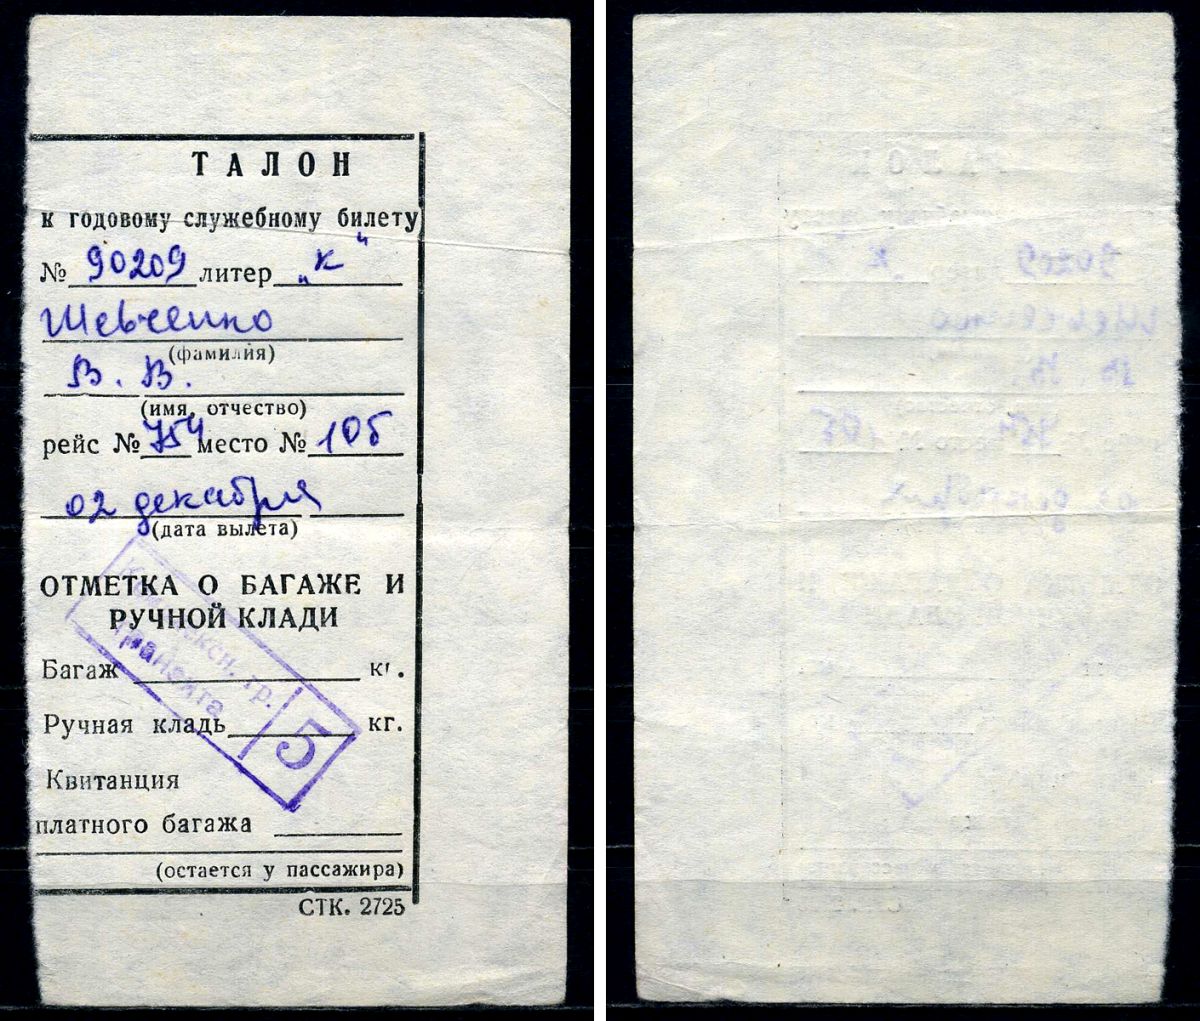 ТАЛОН
к годовому служебному билету
№ 90209 литер „К“
Шевченко
(фамилия)
В. В.
(имя, отчество)
рейс № 754 место № 10б
02 декабря
(дата вылета)
ОТМЕТКА О БАГАЖЕ И
РУЧНОЙ КЛАДИ
Багаж кг.
Ручная кладь кг.
Квитанция
платного багажа
(остается у пассажира)
СТК. 2725
гр.
транзита
5